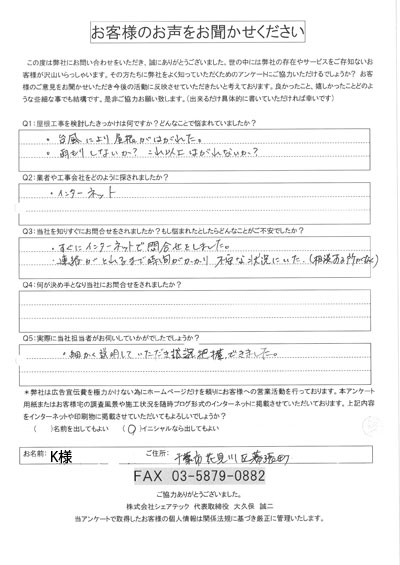 お客様のお声をお聞かせください
この度は弊社にお問い合わせをいただき、誠にありがとうございました。世の中には弊社の存在やサービスをご存知ないお
客様が沢山いらっしゃいます。その方たちに弊社をよく知っていただくためのアンケートにご協力いただけるでしょうか？ お客
様のご意見をお聞かせいただき今後の活動に反映させていただきたいと考えております。良かったこと、嬉しかったことどのよ
うな些細な事でも結構です。是非ご協力お願い致します。（出来るだけ具体的に書いていただければ幸いです）
Q1：屋根工事を検討したきっかけは何ですか？どんなことで悩まれていましたか？
・台風により屋根がはがれた。
・雨もりしないか？ これ以上はがれないか？
Q2：業者や工事会社をどのように探されましたか？
・インターネット
Q3：当社を知りすぐにお問合せをされましたか？もし悩まれたとしたらどんなことがご不安でしたか？
・すぐにインターネットで問合せをしました。
・連絡がとれるまで時間がかかり 不安な状況にいた。
Q4：何が決め手となり当社にお問合せをされましたか？
Q5：実際に当社担当者がお伺いしていかがでしたでしょうか？
・細かく説明していただき 状況把握できました。
＊弊社は広告宣伝費を極力かけない為にホームページだけを頼りにお客様への営業活動を行っております。本アンケート
用紙またはお客様宅の調査風景や施工状況を随時ブログ形式でインターネットに掲載させていただいております。上記内容
をインターネットや印刷物に掲載させていただいてもよろしいでしょうか？
（ ）名前を出してもよい （○）イニシャルなら出してもよい
お名前： K様 ご住所： 千葉市花見川区幕張町
FAX 03-5879-0882
ご協力ありがとうございました。
株式会社シェアテック 代表取締役 大久保 誠二
当アンケートで取得したお客様の個人情報は関係法規に基づき厳正に管理いたします。